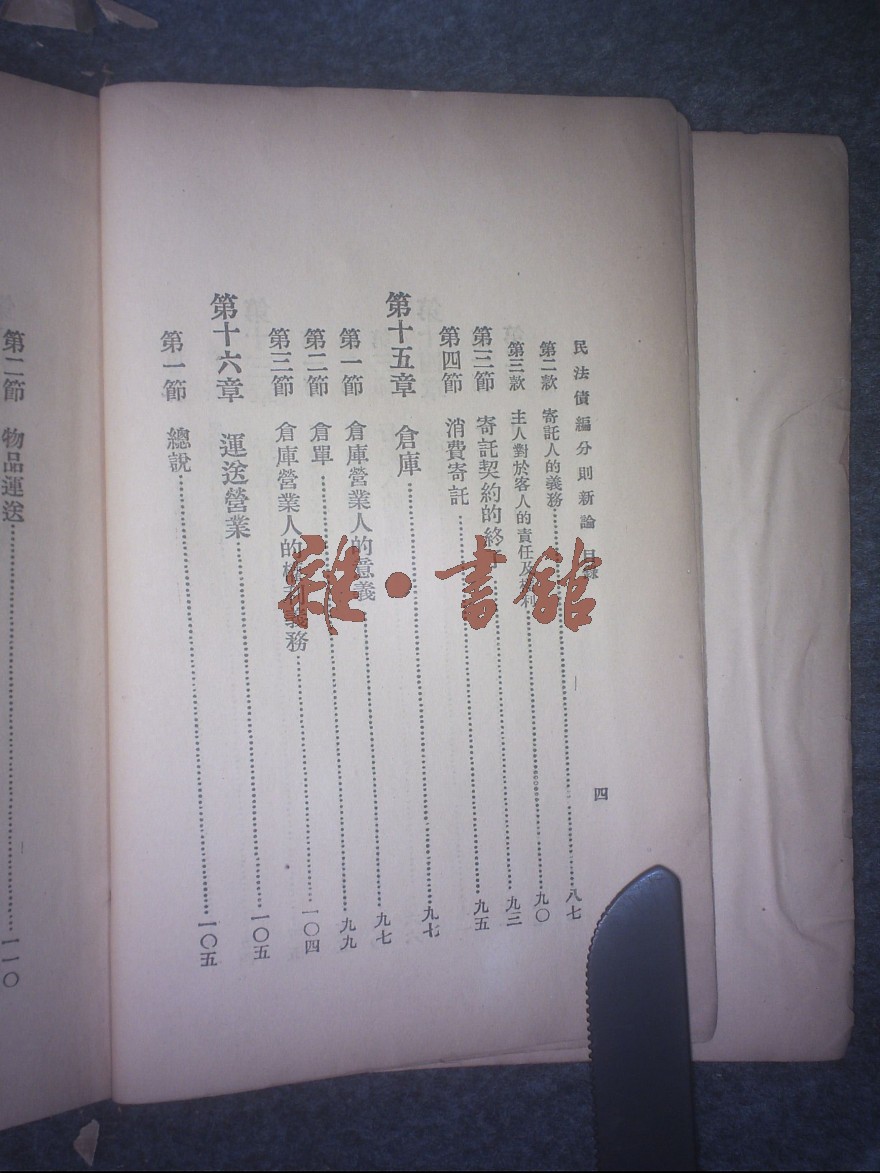 民法債編分則新論 目錄 四
第二款 寄託人的義務……八七
第三款 主人對於客人的責任及權利……九〇
第三節 寄託契約的終了……九二
第四節 消費寄託……九五
第十五章 倉庫……九七
第一節 倉庫營業人的意義……九七
第二節 倉單……九九
第三節 倉庫營業人的權利義務……一〇四
第十六章 運送營業……一〇五
第一節 總說……一〇五
第二節 物品運送……一一〇
雜·書館